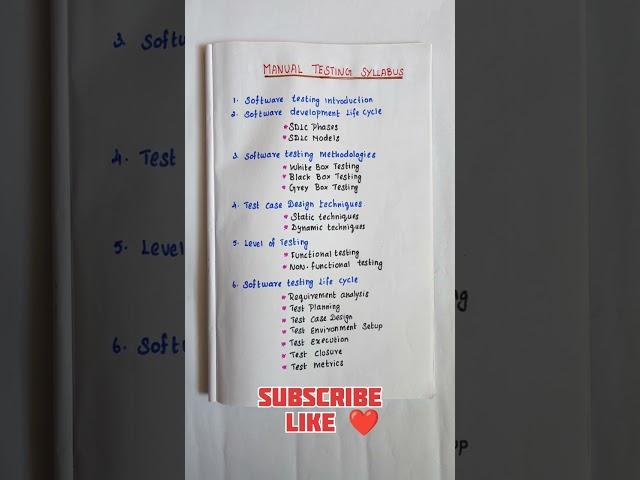 MANUAL TESTING SYLLABUS
1. Software testing introduction
2. Software development Life Cycle
* SDLC Phases
* SDLC Models
3. Software testing methodologies
* White Box Testing
* Black Box Testing
* Grey Box Testing
4. Test Case Design techniques
* Static techniques
* Dynamic techniques
5. Level of Testing
* Functional testing
* Non-functional testing
6. Software testing Life cycle
* Requirement analysis
* Test Planning
* Test Case Design
* Test Environment Setup
* Test Execution
* Test Closure
* Test Metrics
SUBSCRIBE
LIKE ❤️
3. Softw
4. Test
5. Level
6. Softw